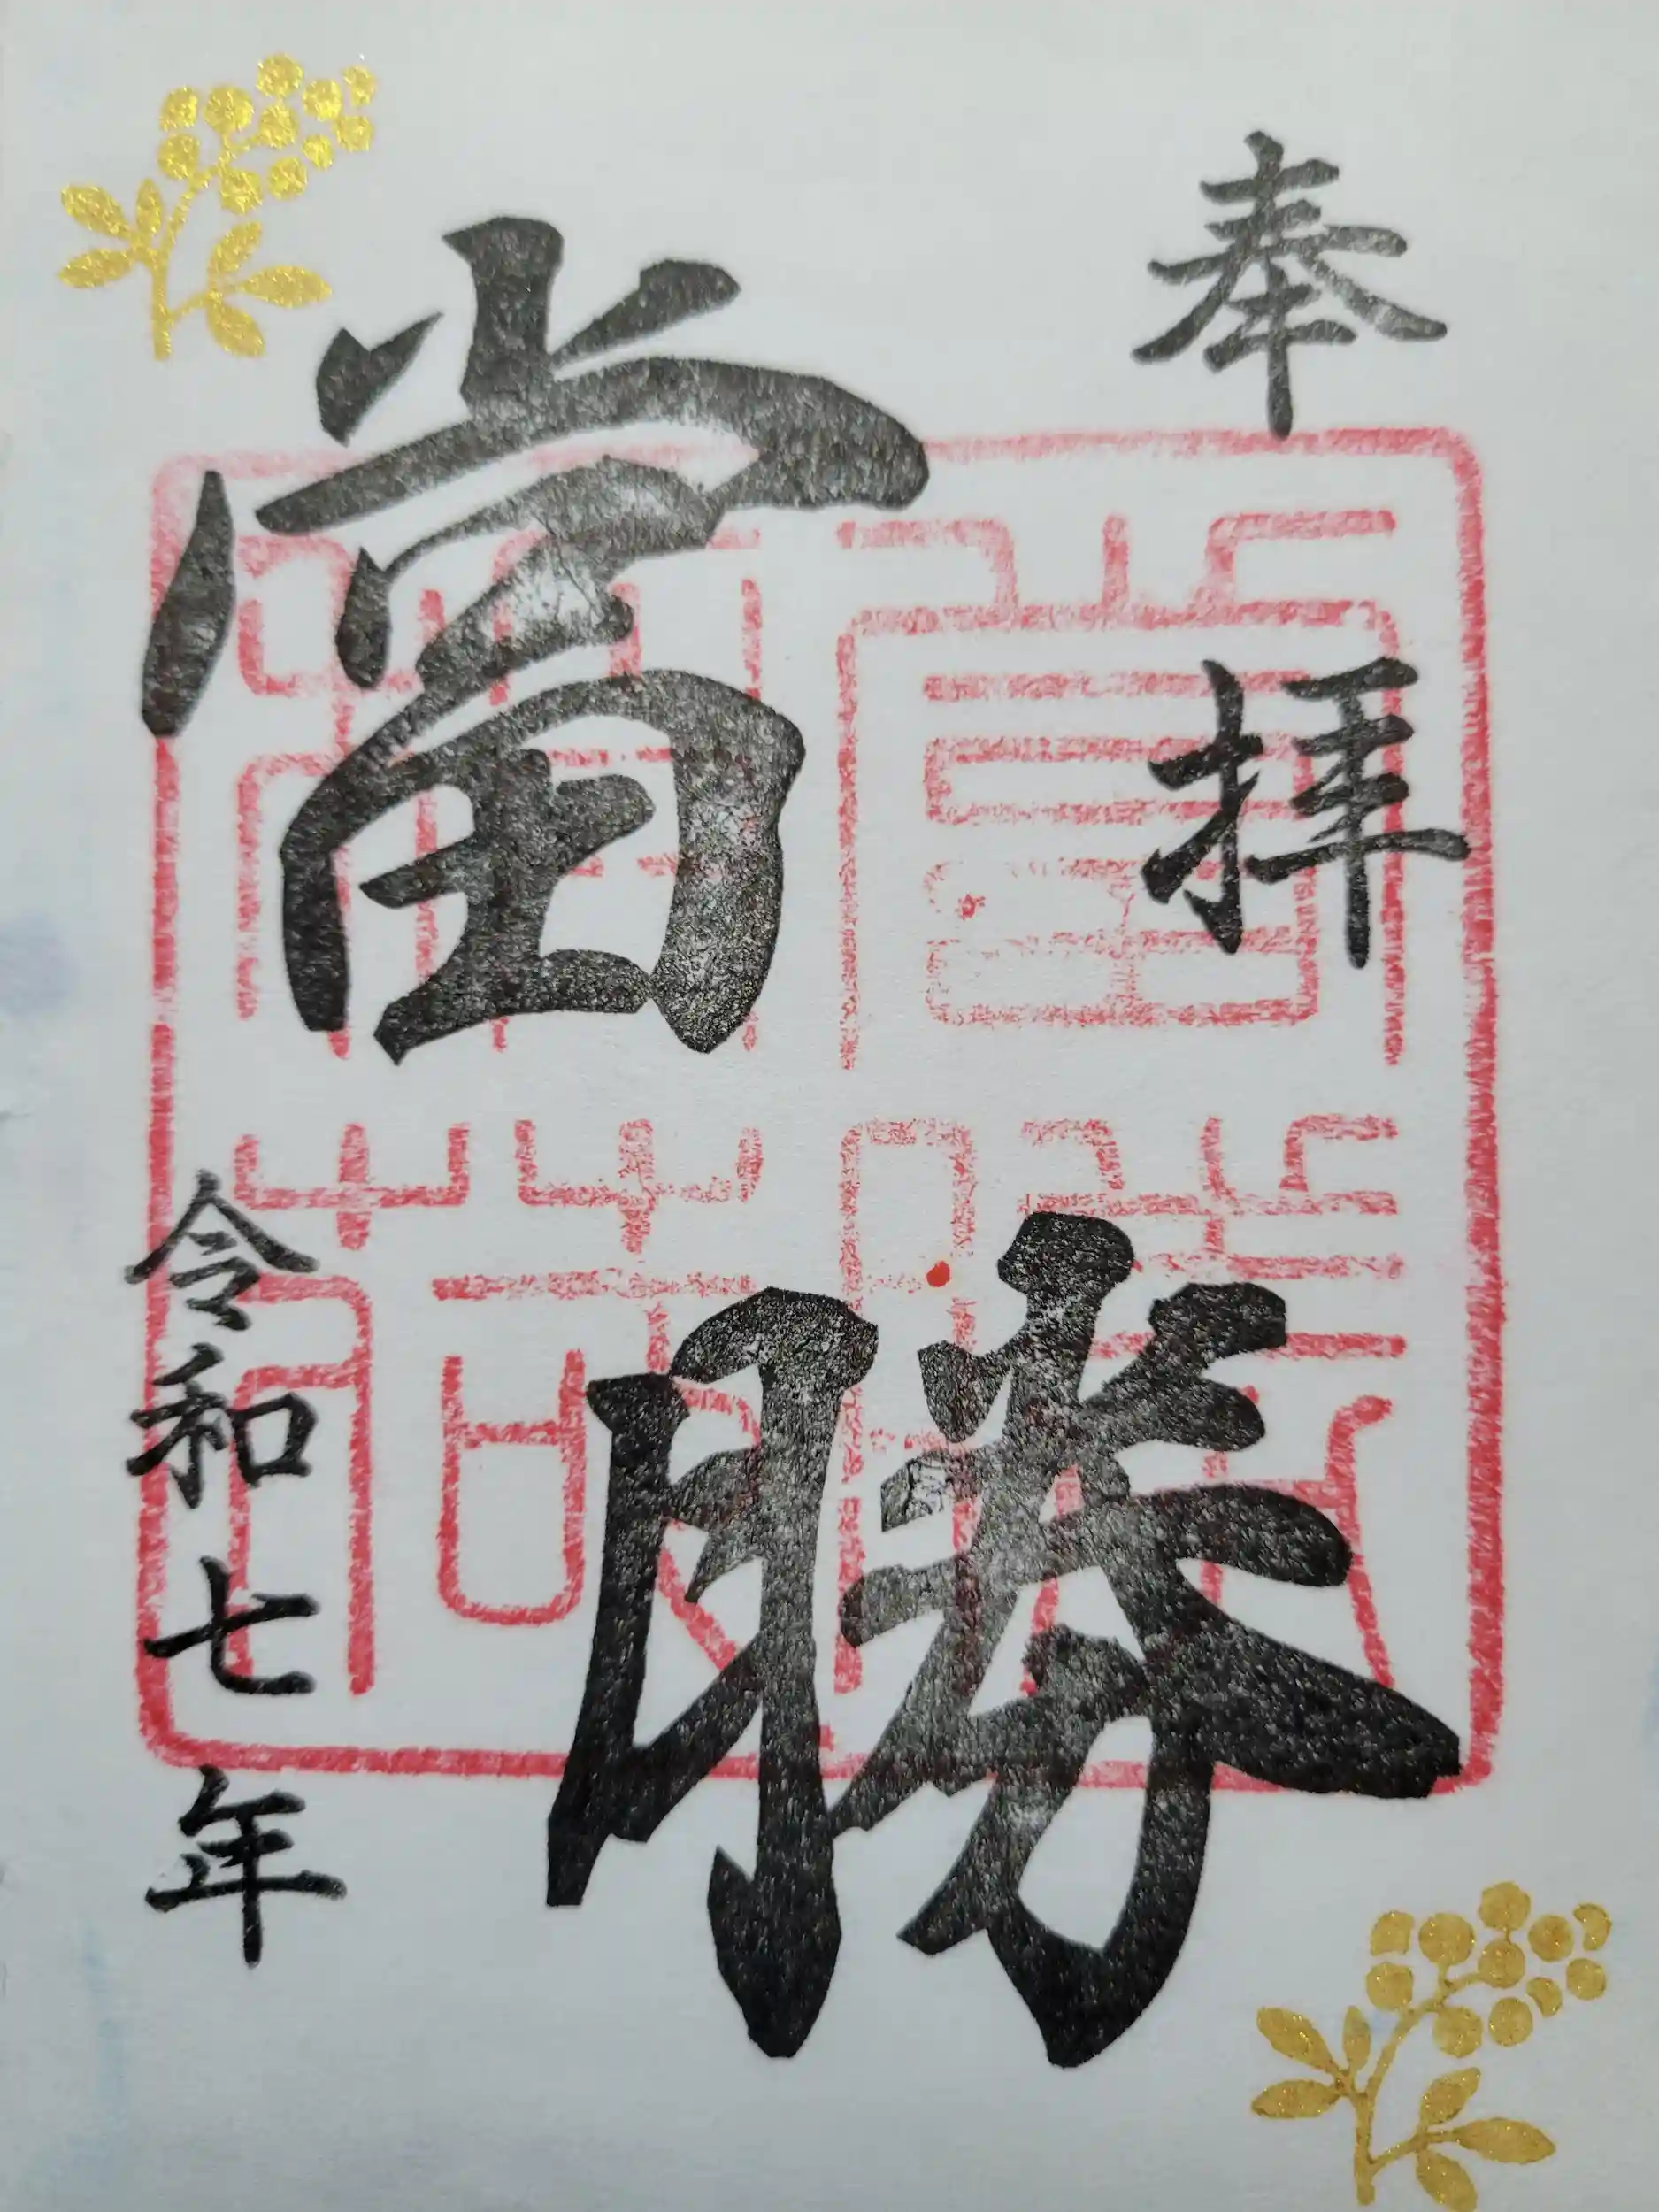 奉拝
當勝
令和七年